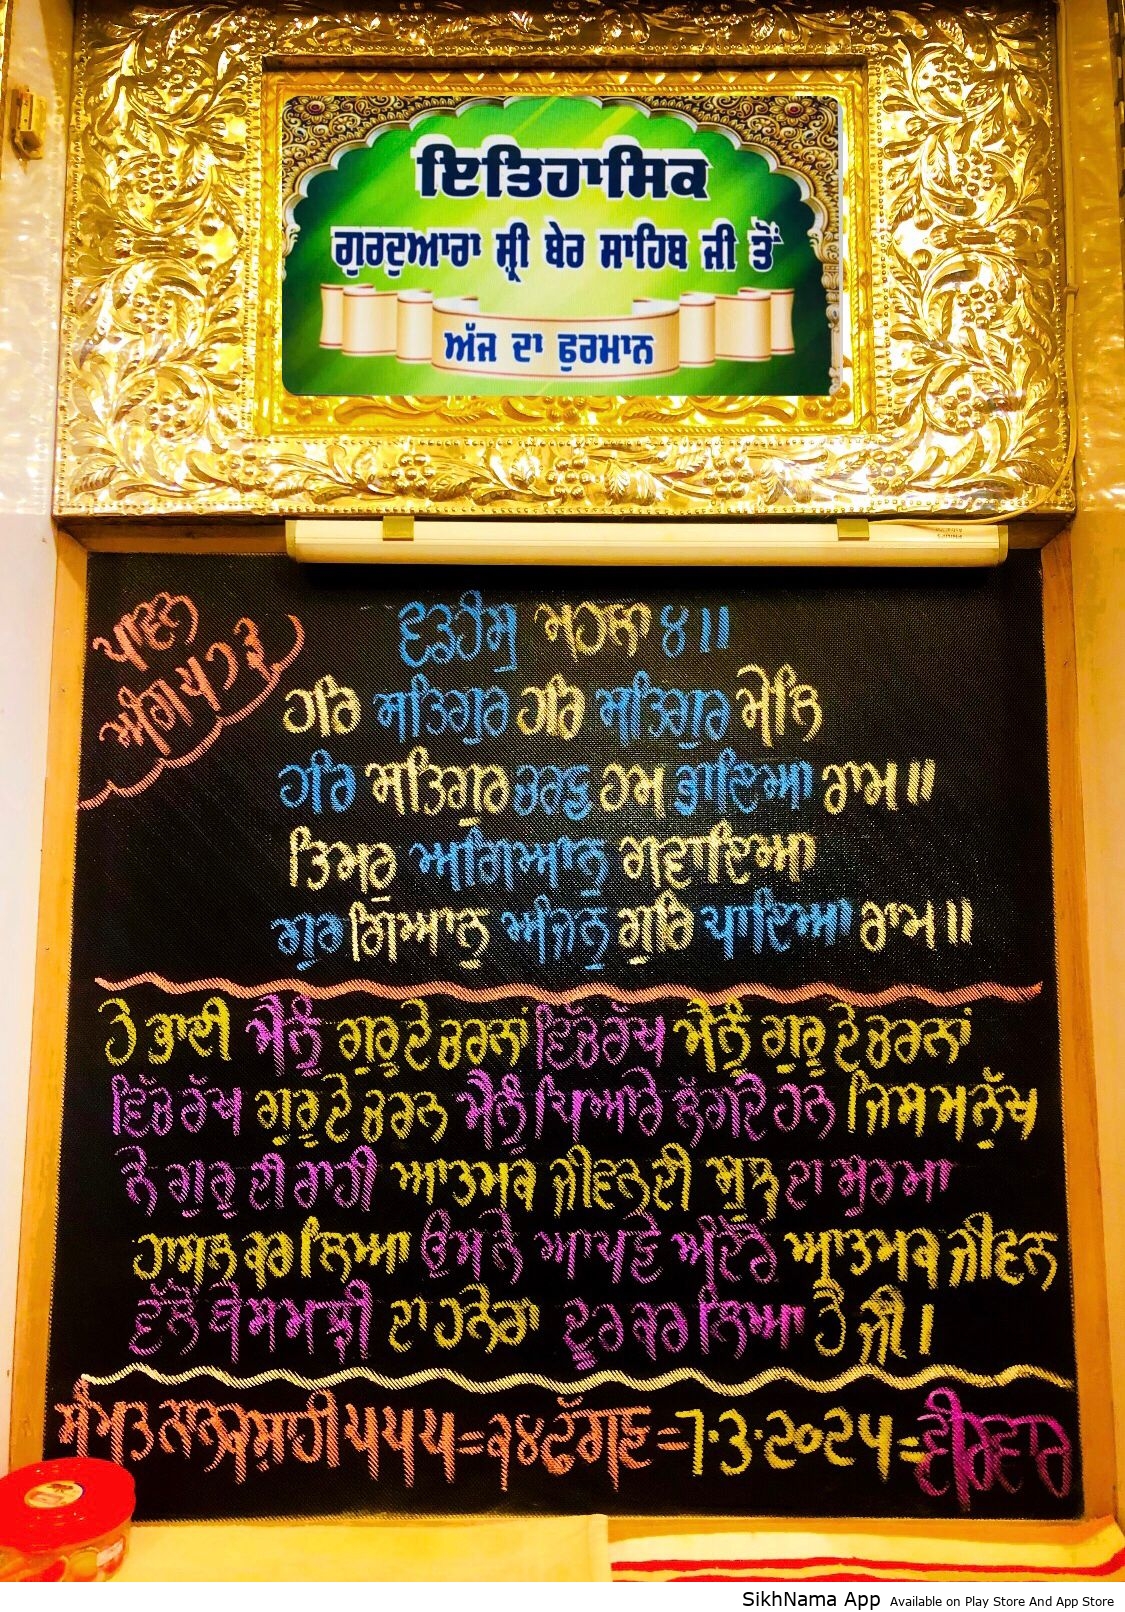 ਇਤਿਹਾਸਿਕ
ਗੁਰਦੁਆਰਾ ਸ਼੍ਰੀ ਬੇਰ ਸਾਹਿਬ ਜੀ ਤੋਂ
ਅੱਜ ਦਾ ਫੁਰਮਾਨ
ਪਾਵਨ
ਅੰਗ ੫੭੩
ਵਡਹੰਸੁ ਮਹਲਾ ੪॥
ਹਰਿ ਸਤਿਗੁਰ ਹਰਿ ਸਤਿਗੁਰ ਮੇਲਿ
ਹਰਿ ਸਤਿਗੁਰ ਚਰਣ ਹਮ ਭਾਇਆ ਰਾਮ॥
ਤਿਮਰ ਅਗਿਆਨੁ ਗਵਾਇਆ
ਗੁਰ ਗਿਆਨੁ ਅੰਜਨੁ ਗੁਰਿ ਪਾਇਆ ਰਾਮ॥
ਹੇ ਭਾਈ ਮੈਨੂੰ ਗੁਰੂ ਦੇ ਚਰਨਾਂ ਵਿੱਚ ਰੱਖ ਮੈਨੂੰ ਗੁਰੂ ਦੇ ਚਰਨਾਂ
ਵਿੱਚ ਰੱਖ ਗੁਰੂ ਦੇ ਚਰਨ ਮੈਨੂੰ ਪਿਆਰੇ ਲੱਗਦੇ ਹਨ ਜਿਸ ਮਨੁੱਖ
ਨੇ ਗੁਰੂ ਦੀ ਰਾਹੀ ਆਤਮਕ ਜੀਵਨ ਦੀ ਸੂਝ ਦਾ ਸੁਰਮਾ
ਹਾਸਲ ਕਰ ਲਿਆ ਉਸਨੇ ਆਪਣੇ ਅੰਦਰੋਂ ਆਤਮਕ ਜੀਵਨ
ਵੱਲੋਂ ਬੇਸਮਝੀ ਦਾ ਹਨੇਰਾ ਦੂਰ ਕਰ ਲਿਆ ਹੈ ਜੀ।
ਸੰਮਤ ਨਾਨਕਸ਼ਾਹੀ ੫੫੫=੨੪ ਫੱਗਣ=7.3.੨੦੨੫=ਵੀਰਵਾਰ
SikhNama App Available on Play Store And App Store